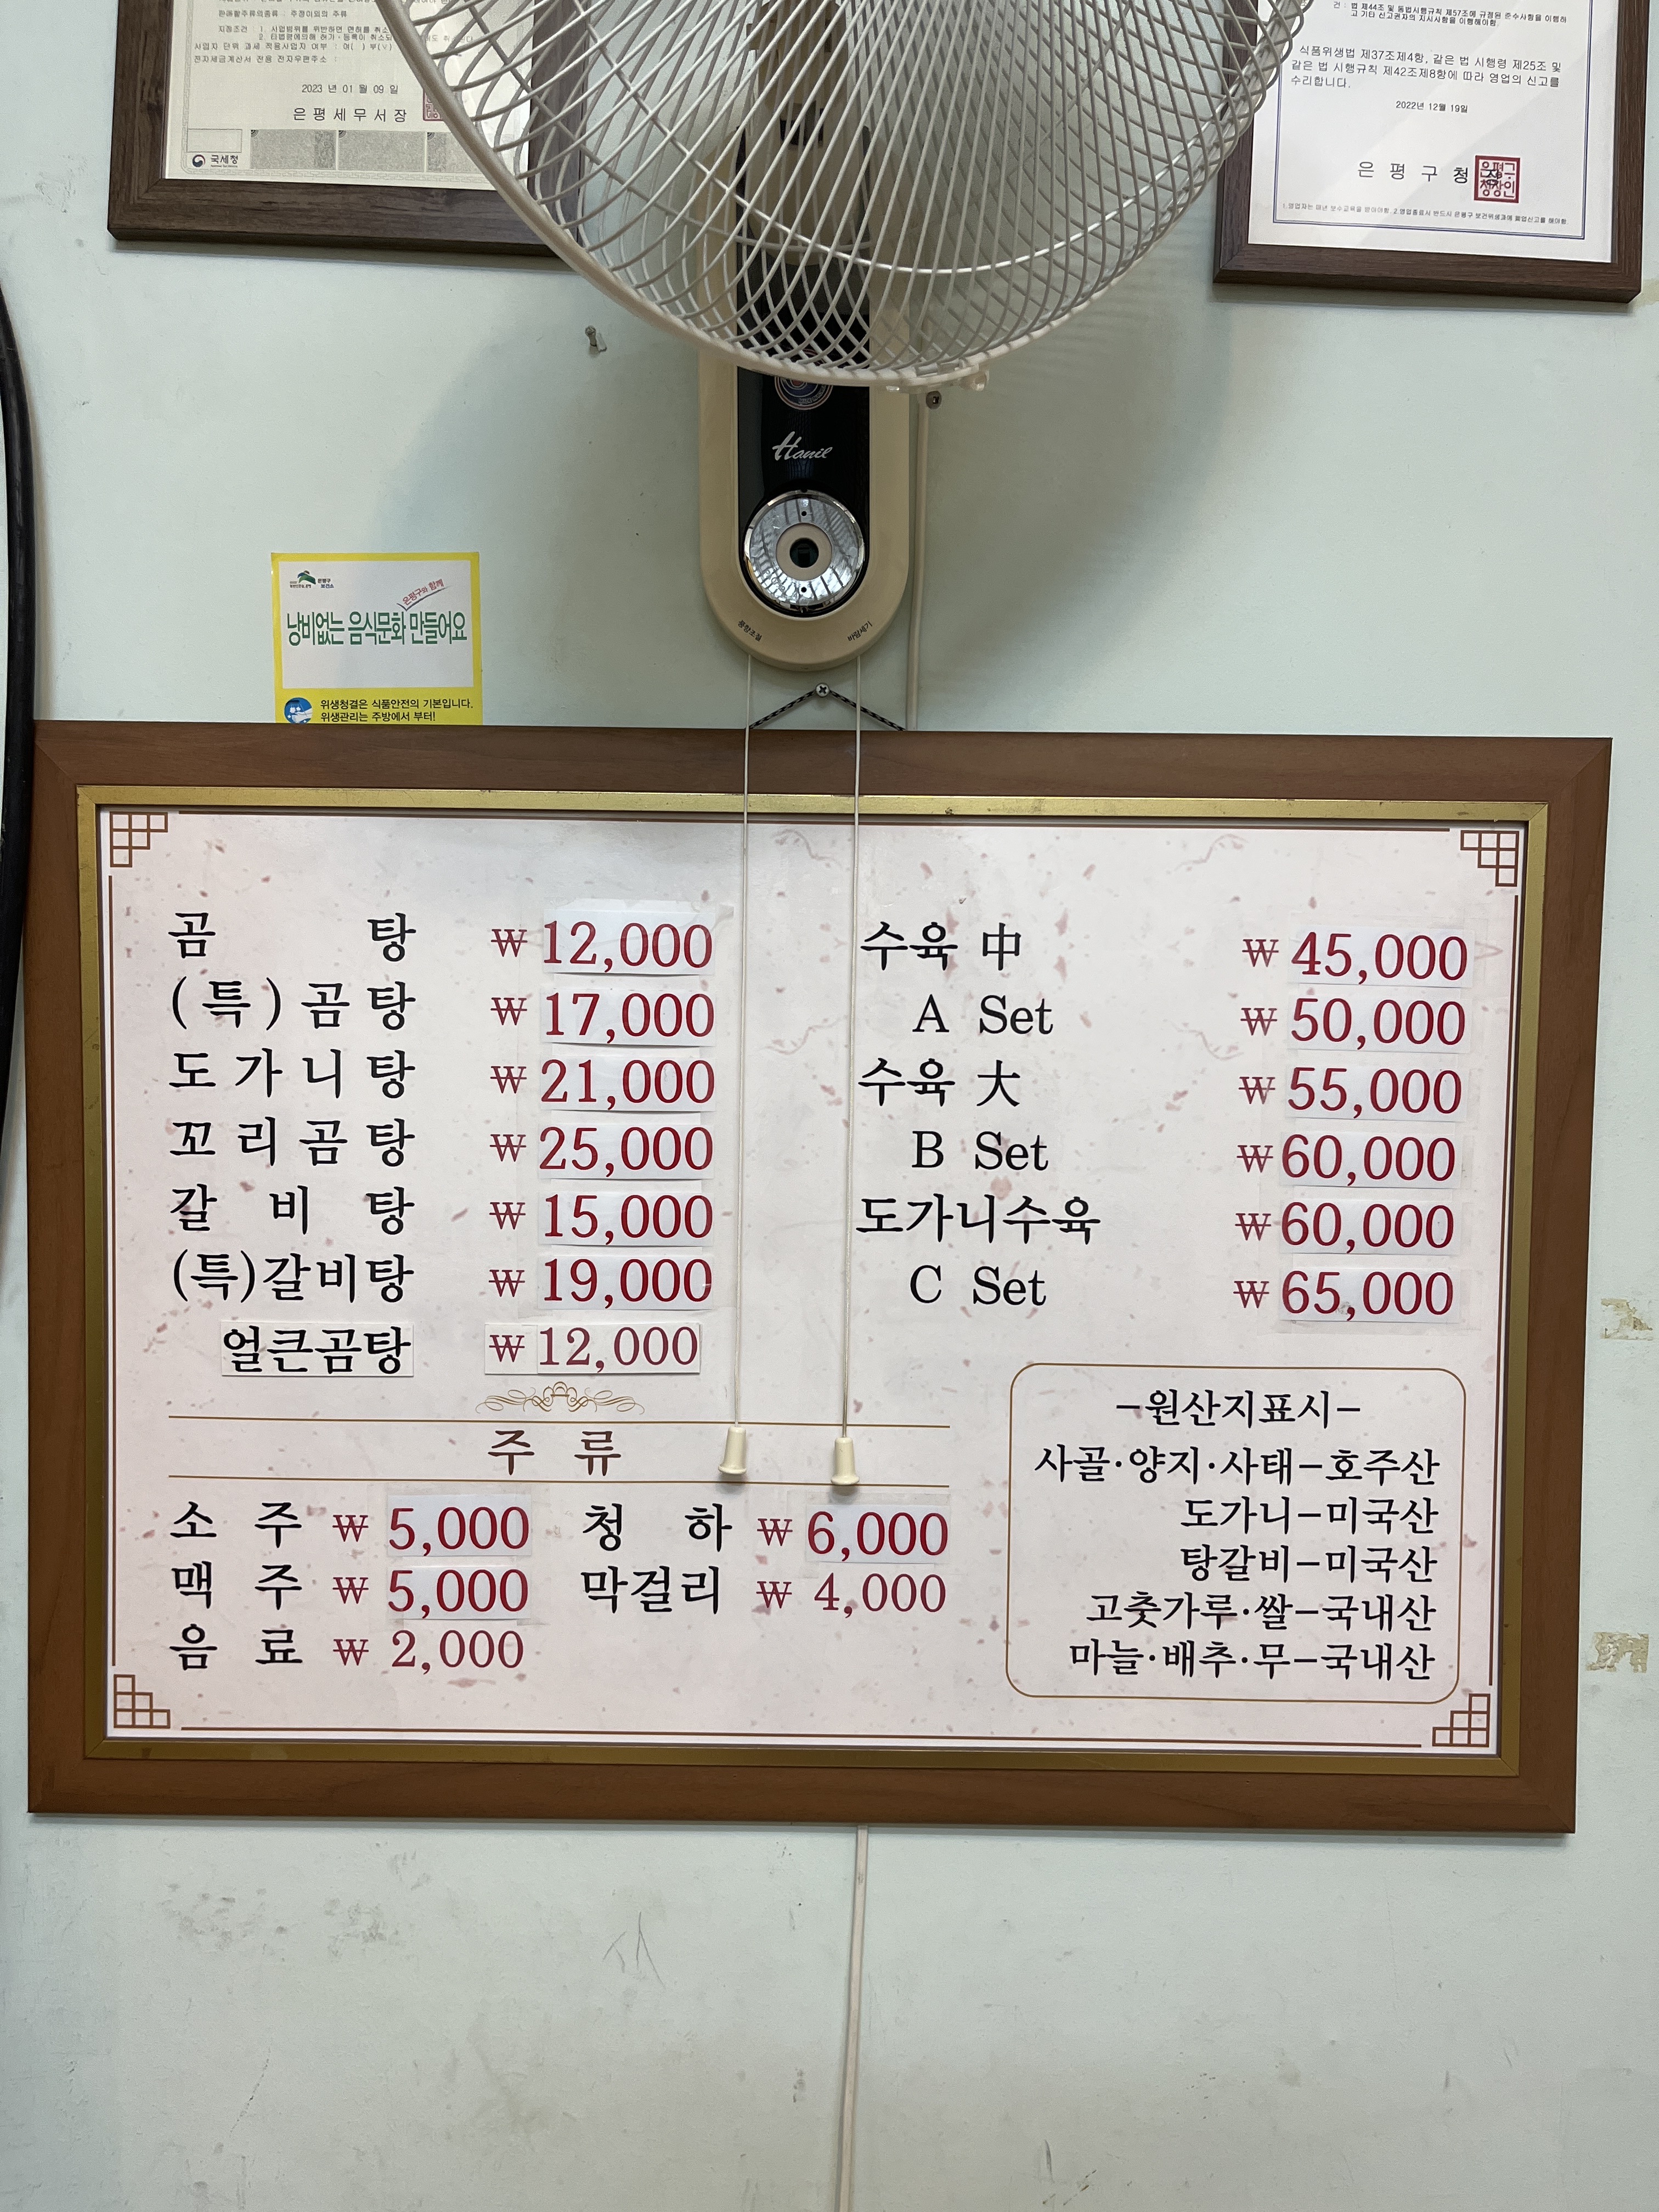 판매할주류의종류 : 주정이외의 주류
지정조건 : 1. 사업범위를 위반하면 면허를 취소
사업자 단위 과세 적용사업자 여부 : 여( ) 부(∨)
전자세금계산서 전용 전자우편주소 :
2023 년 01 월 09 일
은평세무서장
국세청
건 : 법 제44조 및 동법시행규칙 제57조에 규정된 준수사항을 이행하
고 기타 신고관자의 지시사항을 이행해야함.
식품위생법 제37조제4항, 같은 법 시행령 제25조 및
같은 법 시행규칙 제42조제8항에 따라 영업의 신고를
수리합니다.
2022년 12월 19일
은 평 구 청 장
은평구
청장인
Hanil
풍향조절 바람세기
은평구
보건소
은평구와 함께
낭비없는 음식문화 만들어요
위생청결은 식품안전의 기본입니다.
위생관리는 주방에서 부터!
곰 탕 ₩ 12,000
(특)곰탕 ₩ 17,000
도가니탕 ₩ 21,000
꼬리곰탕 ₩ 25,000
갈 비 탕 ₩ 15,000
(특)갈비탕 ₩ 19,000
얼큰곰탕 ₩ 12,000
수육 中 ₩ 45,000
A Set ₩ 50,000
수육 大 ₩ 55,000
B Set ₩ 60,000
도가니수육 ₩ 60,000
C Set ₩ 65,000
주 류
소 주 ₩ 5,000 청 하 ₩ 6,000
맥 주 ₩ 5,000 막걸리 ₩ 4,000
음 료 ₩ 2,000
-원산지표시-
사골·양지·사태-호주산
도가니-미국산
탕갈비-미국산
고춧가루·쌀-국내산
마늘·배추·무-국내산